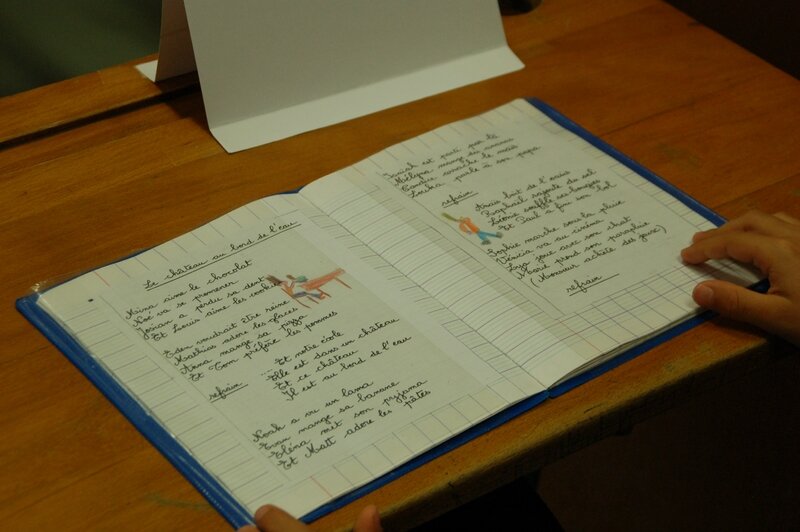 Le château au bord de l'eau
Mina aime le chocolat
Noé va se promener
Jonan a perdu sa dent
Et Louis aime les cookies
Eden voudrait être reine
Mathias adore les glaces
Anna mange sa pizza
Et Tom préfère les pommes
refrain
... Et notre école
Elle est dans un château
Et ce château
Il est au bord de l'eau
Noah a vu un lama
Evan mange sa banane
Eléna met son pyjama
Et Matt adore les pâtes
est parti par là
mange des ananas
Candice arrache le maïs
parle à son papa
refrain
Anaïs boit de l'eau
Raphaël saute du sol
Léonie souffle ses bougies
Et Paul a fini son bol
Sophie marche sous la pluie
va au cinéma
joue avec son chat
prend son parapluie
(Monsieur achète des jeux)
refrain